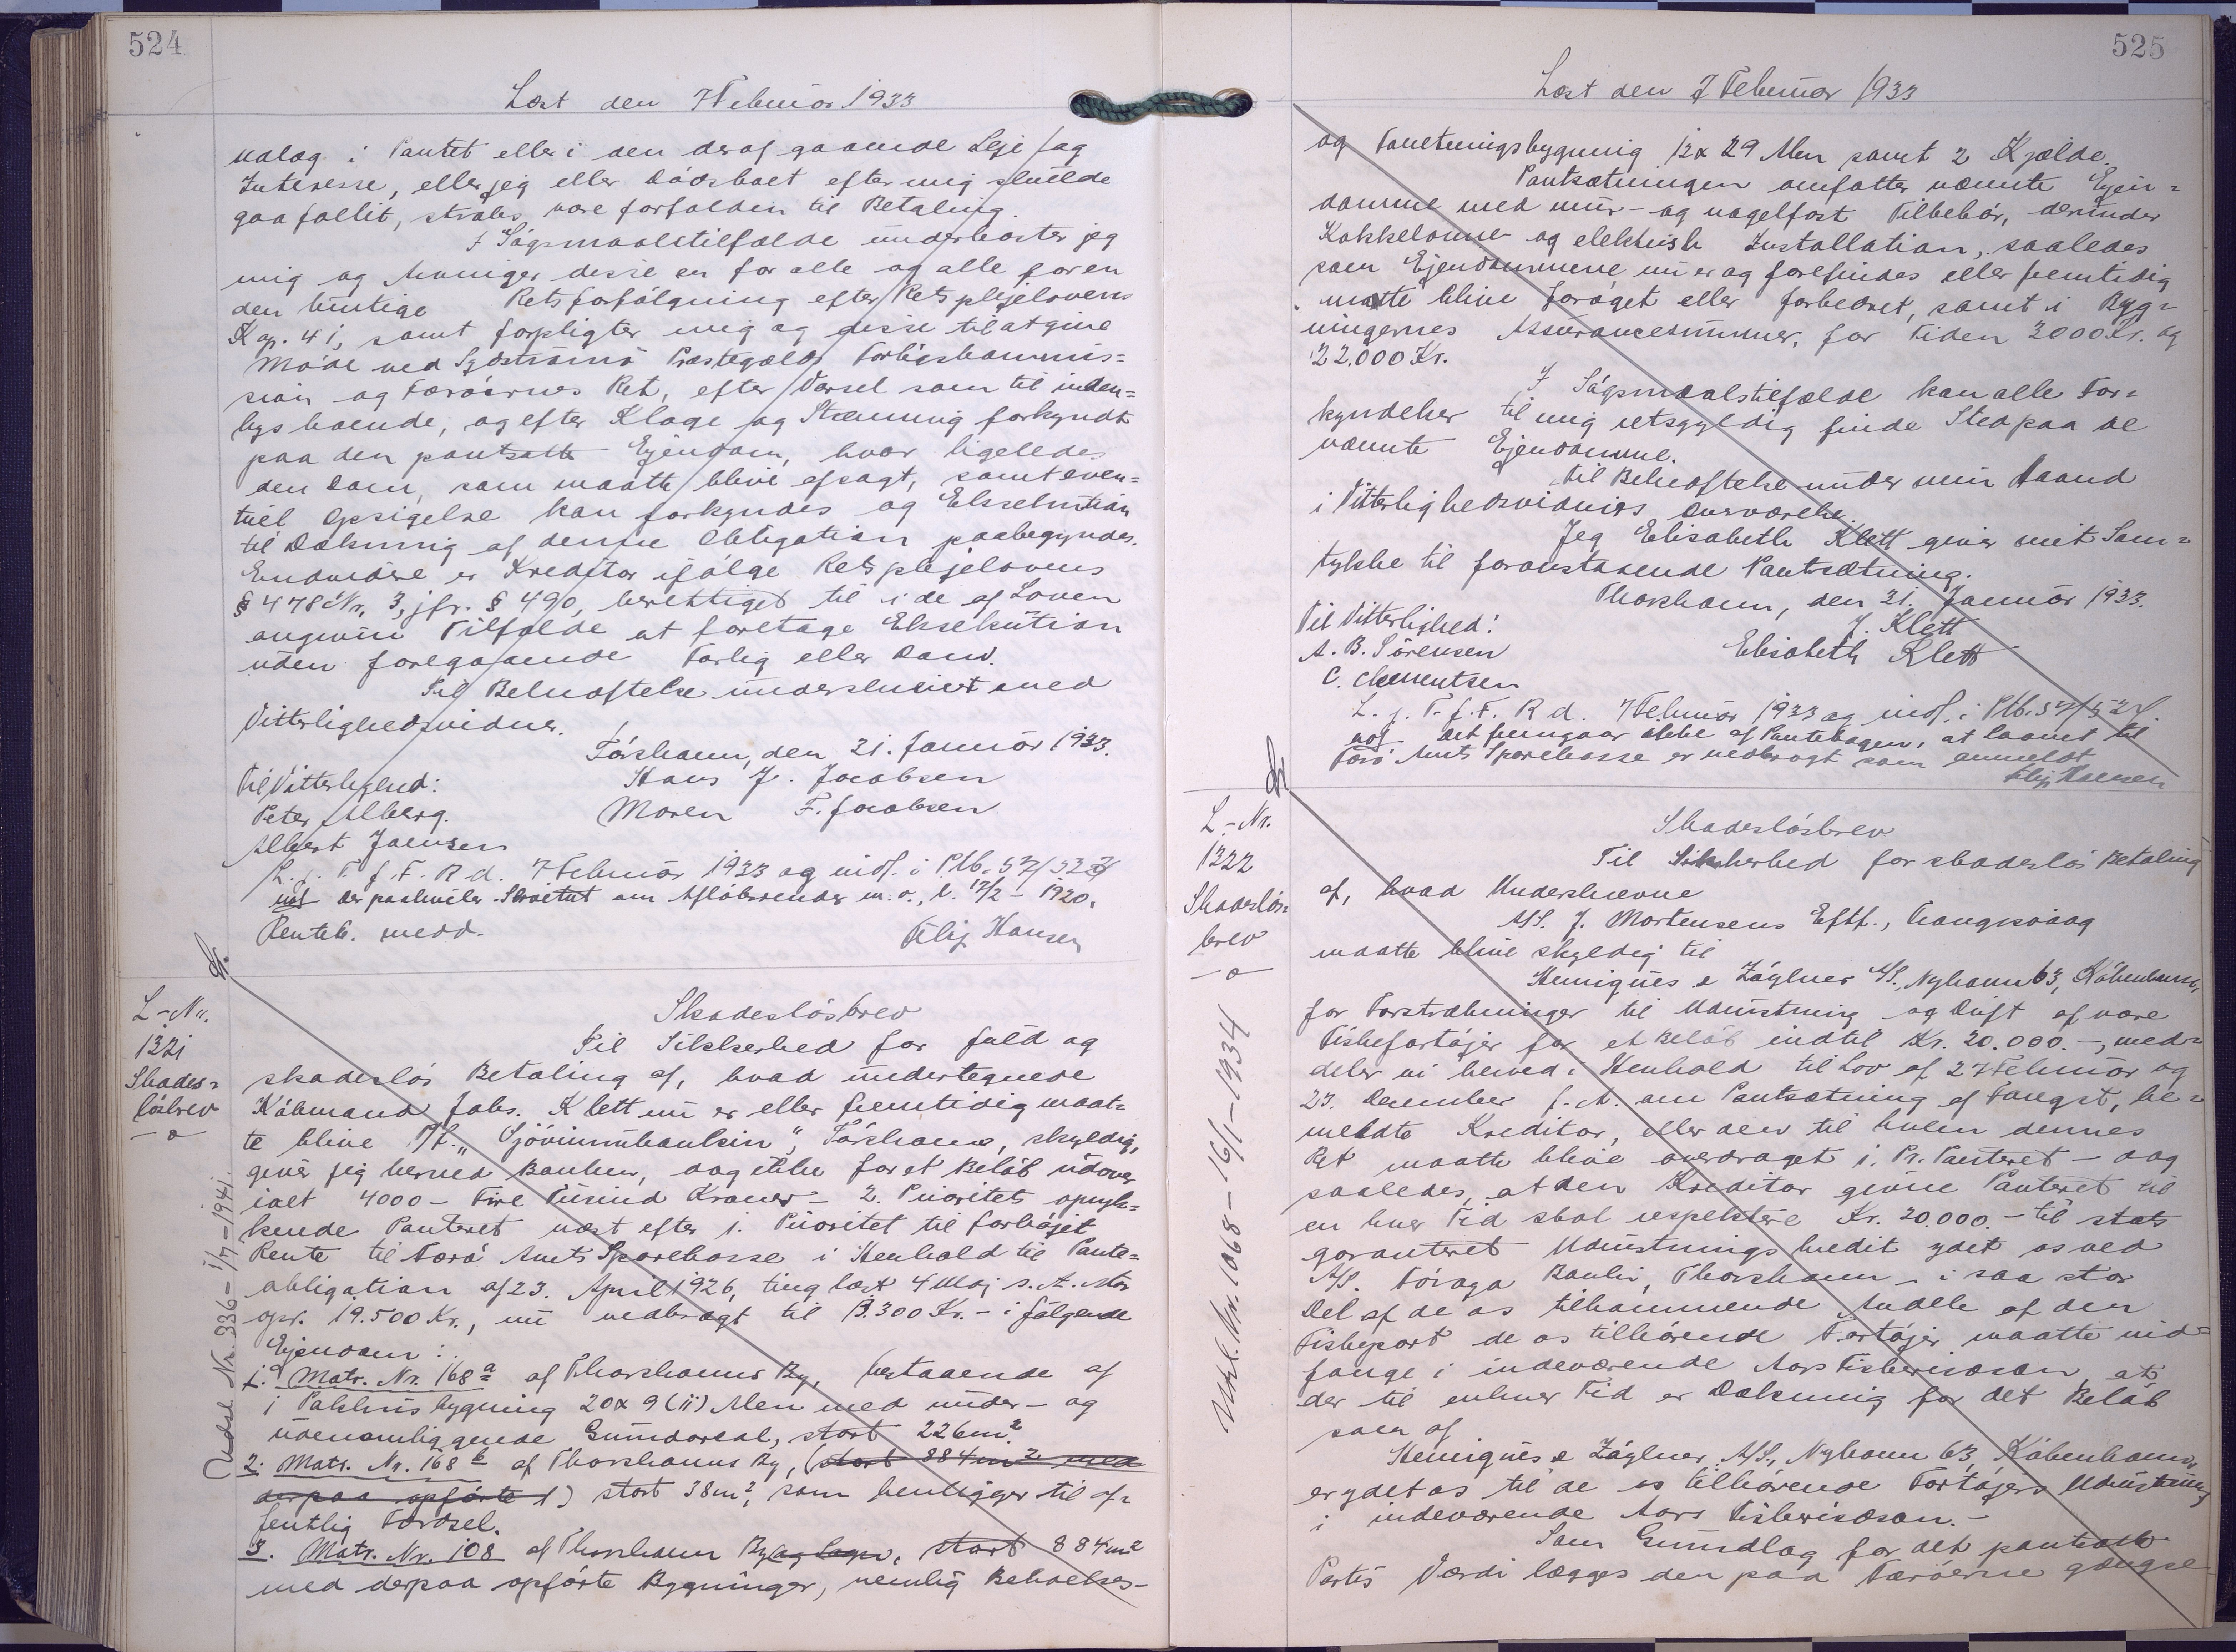 524
Læst den 7 Februar 1933
udlæg i Pantet eller i den deraf gaaende Leje og
Interesse, eller jeg eller Dødsboet efter mig skulde
gaa fallit, straks være forfalden til Betaling.
I Søgsmaalstilfælde underkaster jeg
mig og Arvinger disse en for alle og alle for en
den hurtige Retsforfølgning efter Retsplejelovens
Kap. 41, samt forpligter mig og disse til at give
Møde ved Sydstrømø Præstegælds Forligskommis=
sion og Færøernes Ret, efter Varsel som til inden=
bys boende, og efter Klage og Stævning forkyndt
paa den pantsatte Ejendom, hvor ligeledes
den Dom, som maatte blive afsagt, samt even=
tuel Opsigelse kan forkyndes og Eksekution
til Dækning af denne Obligation paabegyndes.
Endvidere er Kreditor ifølge Retsplejelovens
§ 478 Nr. 3, jfr. § 490, berettiget til i de af Loven
angivne Tilfælde at foretage Eksekution
uden foregaaende Forlig eller Dom.
Til Bekræftelse underskrevet med
Vitterlighedsvidner.
Tórshavn, den 31. Januar 1933.
Til Vitterlighed:
Hans J. Jacobsen
Peter Alberg.
Maren F. Jacobsen
Albert Joensen
L. i. T. f. F. R. d. 7 Februar 1933 og indf. i Ptb. S 7/523
not der paahviler Skrøtut om Afløbsrender m. v., l. 12/2 - 1920.
Panteb. medd.
Filip Hansen
L-Nr.
1321
Skades=
løsbrev
-o-
Udsl. Nr. 336 - 1/7 - 1941.
Skadesløsbrev
Til Sikkerhed for fuld og
skadesløs Betaling af, hvad undertegnede
Købmand Johs. Klett nu er eller fremtidig maat=
te blive P/f. "Sjóvinnubankin", Tórshavn, skyldig,
giver jeg herved Banken, dog ikke for et Beløb udover
ialt 4000 - Fire Tusind Kroner - 2. Prioritets opryk=
kende Panteret næst efter 1. Prioritet til forhøjet
Rente til Færø Amts Sparekasse i Henhold til Pante=
obligation af 23. April 1926, tinglæst 4 Maj s. A. stor
opr. 19.500 Kr., nu nedbragt til 13.300 Kr. - i følgende
Ejendom:
1. Matr. Nr. 168 a af Thorshavns By, bestaaende af
1 Pakhusbygning 20 x 9 (11) Alen med under- og
udenomliggende Grundareal, stort 226 m².
2. Matr. Nr. 168 b af Thorshavns By, (stort 884 m² med
derpaa opførte 1) stort 38 m², som henligger til of=
fentlig Færdsel.
3. Matr. Nr. 108 af Thorshavn By og Løgn, stort 884 m²
med derpaa opførte Bygninger, nemlig Beboelses-
525
Læst den 7 Februar 1933
og Forretningsbygning 12 x 29 Alen samt 2 Kjælde.
Pantsætningen omfatter nævnte Ejen=
domme med mur- og nagelfast Tilbehør, derunder
Kakkelovne og elektrisk Installation, saaledes
som Ejendommene nu er og forefindes eller fremtidig
maatte blive forøget eller forbedret, samt i Byg=
ningernes Assurancesummer, for Tiden 3000 Kr. og
22.000 Kr.
I Søgsmaalstilfælde kan alle For=
kyndelser til mig retsgyldig finde Sted paa de
nævnte Ejendomme.
Til Bekræftelse under min Haand
i Vitterlighedsvidners Overværelse.
Jeg Elisabeth Klett giver mit Sam=
tykke til foranstaaende Pantsætning.
Thorshavn, den 31. Januar 1933.
Til Vitterlighed:
J. Klett
A. B. Sørensen
Elisabeth Klett
C. Clementsen
L. i. T. f. F. R. d. 7 Februar 1933 og indf. i Ptb. S 7/524.
not Det fremgaar ikke af Pantebogen, at Laanet til
Færø Amts Sparekasse er nedbragt som anmeldt
Filip Hansen
L.-Nr.
1322
Skadesløs=
brev
-o-
Udsl. Nr. 1068 - 16/1 - 1934
Skadesløsbrev
Til Sikkerhed for skadesløs Betaling
af, hvad Underskrevne
A/S. J. Mortensens Eftf., Trangisvaag
maatte blive skyldig til
Henriques & Zøylner A/S., Nyhavn 63, København,
for Forstrækninger til Udrustning og Drift af vore
Fiskefartøjer for et Beløb indtil Kr. 20.000.-, med=
deler vi herved i Henhold til Lov af 27 Februar og
23. December f. A. om Pantsætning af Fangst, be=
meldte Kreditor, eller den til hvem dennes
Ret maatte blive overdraget 1. Pr. Panteret - dog
saaledes, at den Kreditor givne Panteret til
en hver Tid skal respektere Kr. 20.000.- til stats
garanteret Udrustningskredit ydet os ved
A/S. Føroya Banki, Thorshavn - i saa stor
Del af de os tilkommende Andele af den
Fiskeport de os tilhørende Fartøjer maatte ind=
fange i indeværende Aars Fiskerisæson, at
der til enhver Tid er Dækning for det Beløb
som af
Henriques & Zøylner A/S., Nyhavn 63, København,
er ydet os til de os tilhørende Fartøjers Udrustning
i indeværende Aars Fiskerisæson.-
Som Grundlag for det pantsatte
Partis Værdi lægges den paa Færøerne gængse